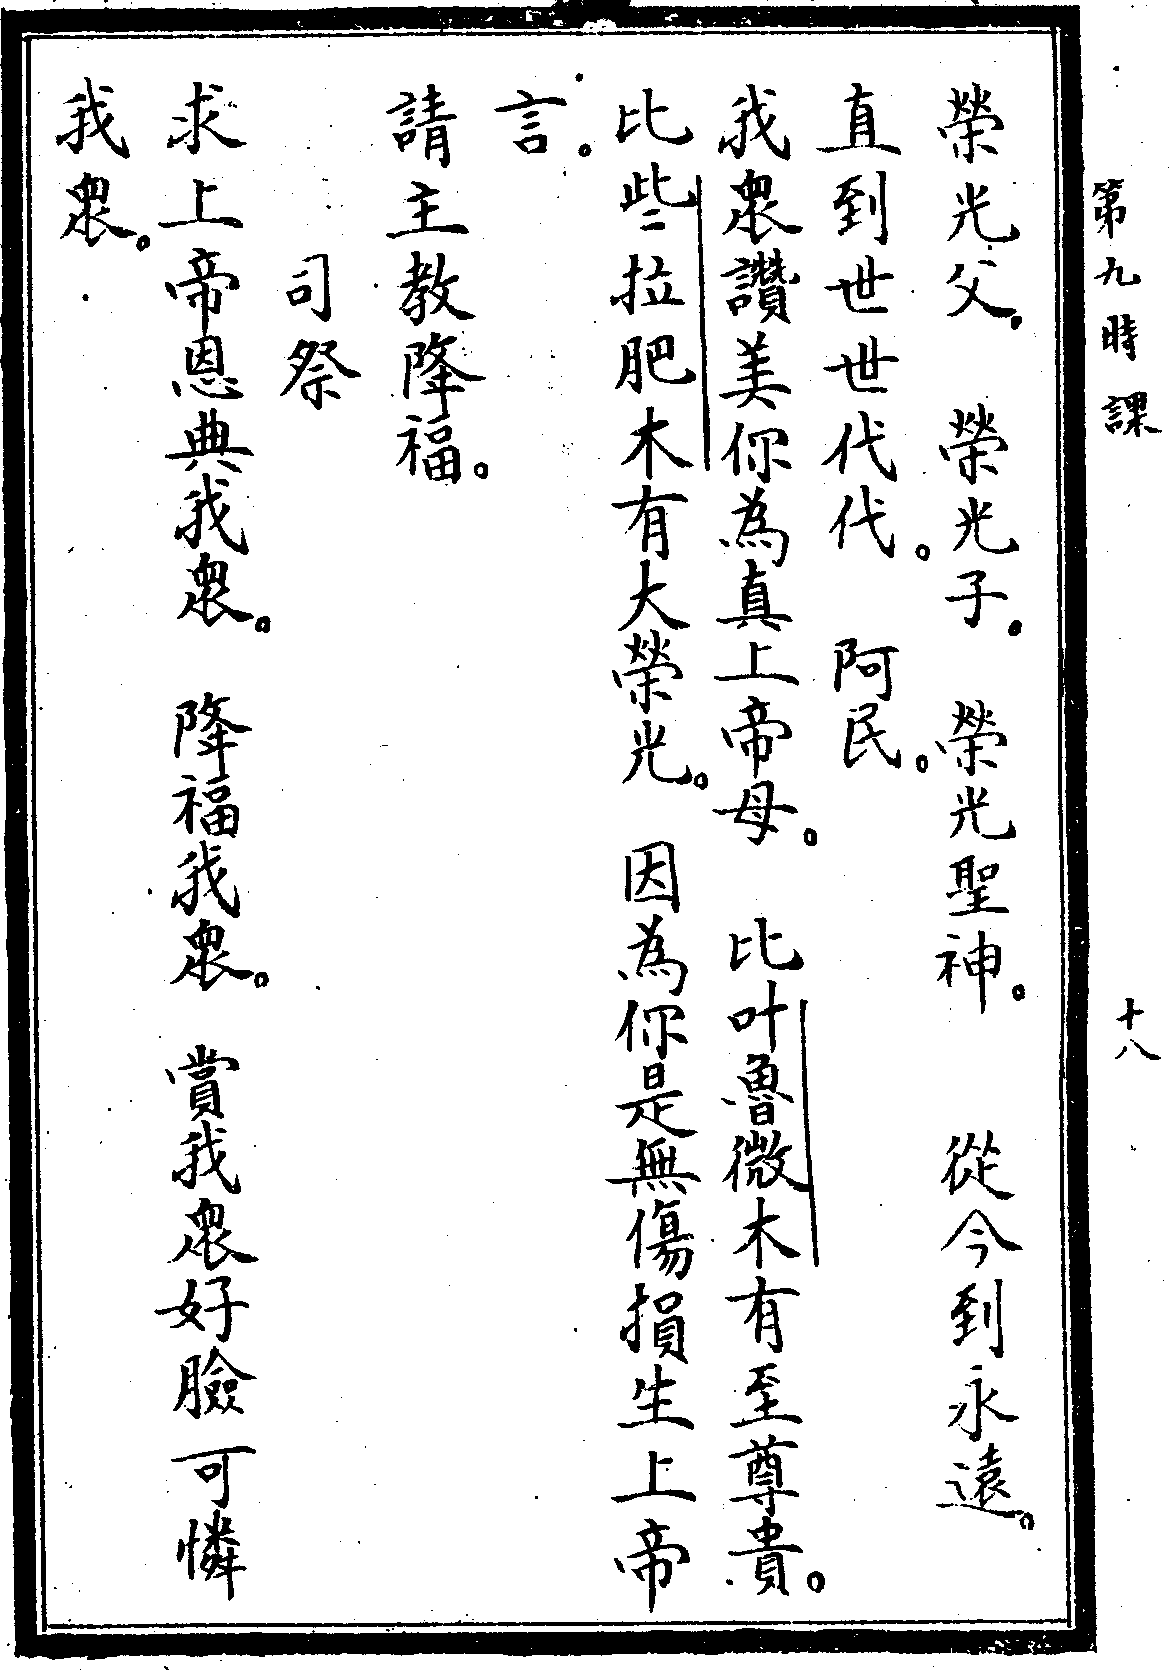 第九時課　十八
榮光父。　榮光子。　榮光聖神。　從今到永遠。
直到世世代代。　阿民。
我衆讚美你為真上帝母。　比叶魯微木有至尊貴。
比些拉肥木有大榮光。　因為你是無傷損生上帝
言。
請主教降福。
司祭
求上帝恩典我衆。　降福我衆。　賞我衆好臉可憐
我衆。